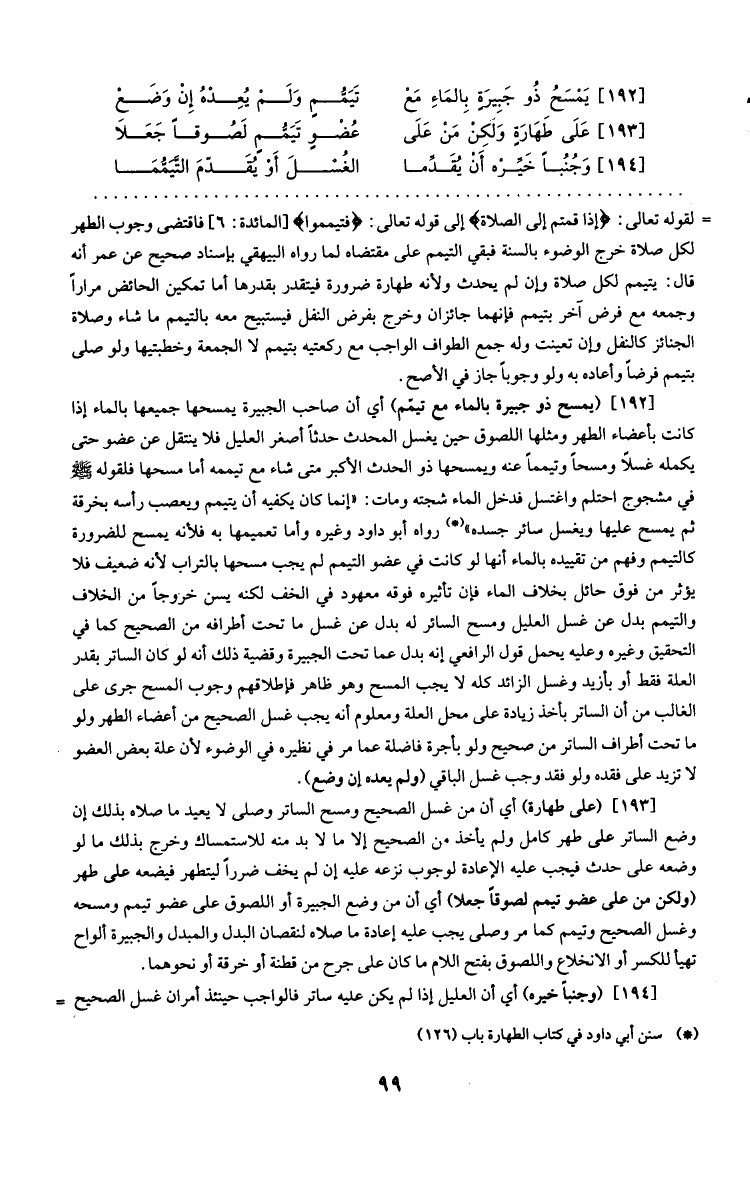 [١٩٢] يَمْسَحُ ذُو جَبِيرَةٍ بِالمَاءِ مَعْ تَيَمُّمٍ وَلَمْ يُعِدْهُ إِنْ وَضَعْ
[١٩٣] عَلَى طَهَارَةٍ وَلَكِنْ مَنْ عَلَى عُضْوِ تَيَمُّمٍ لَصُوقاً جَعَلَا
[١٩٤] وَجُنُباً خَيِّرْه أَنْ يُقَدِّما الغُسْلَ أَوْ يُقَدِّمَ التَّيَمُّمَا
= لقوله تعالى: ﴿إذا قمتم إلى الصلاة﴾ إلى قوله تعالى: ﴿فتيمموا﴾ [المائدة: ٦] فاقتضى وجوب الطهر
لكل صلاة خرج الوضوء بالسنة فبقي التيمم على مقتضاه لما رواه البيهقي بإسناد صحيح عن عمر أنه
قال: يتيمم لكل صلاة وإن لم يحدث ولأنه طهارة ضرورة فيتقدر بقدرها أما تمكين الحائض مراراً
وجمعه مع فرض آخر بتيمم فإنهما جائزان وخرج بفرض النفل فيستبيح معه بالتيمم ما شاء وصلاة
الجنائز كالنفل وإن تعينت وله جمع الطواف الواجب مع ركعتيه بتيمم لا الجمعة وخطبتيها ولو صلى
بتيمم فرضاً وأعاده به ولو وجوباً جاز في الأصح.
[١٩٢] (يمسح ذو جبيرة بالماء مع تيمّم) أي أن صاحب الجبيرة يمسحها جميعها بالماء إذا
كانت بأعضاء الطهر ومثلها اللصوق حين يغسل المحدث حدثاً أصغر العليل فلا ينتقل عن عضو حتى
يكمله غسلاً ومسحاً وتيمماً عنه ويمسحها ذو الحدث الأكبر متى شاء مع تيممه أما مسحها فلقوله ﷺ
في مشجوج احتلم واغتسل فدخل الماء شجته ومات: «إنما كان يكفيه أن يتيمم ويعصب رأسه بخرقة
ثم يمسح عليها ويغسل سائر جسده»(*) رواه أبو داود وغيره وأما تعميمها به فلأنه يمسح للضرورة
كالتيمم وفهم من تقييده بالماء أنها لو كانت في عضو التيمم لم يجب مسحها بالتراب لأنه ضعيف فلا
يؤثر من فوق حائل بخلاف الماء فإن تأثيره فوقه معهود في الخف لكنه يسن خروجاً من الخلاف
والتيمم بدل عن غسل العليل ومسح الساتر له بدل عن غسل ما تحت أطرافه من الصحيح كما في
التحقيق وغيره وعليه يحمل قول الرافعي إنه بدل عما تحت الجبيرة وقضية ذلك أنه لو كان الساتر بقدر
العلة فقط أو بأزيد وغسل الزائد كله لا يجب المسح وهو ظاهر فإطلاقهم وجوب المسح جرى على
الغالب من أن الساتر يأخذ زيادة على محل العلة ومعلوم أنه يجب غسل الصحيح من أعضاء الطهر ولو
ما تحت أطراف الساتر من صحيح ولو بأجرة فاضلة عما مر في نظيره في الوضوء لأن علة بعض العضو
لا تزيد على فقده ولو فقد وجب غسل الباقي (ولم يعده إن وضع).
[١٩٣] (على طهارة) أي أن من غسل الصحيح ومسح الساتر وصلى لا يعيد ما صلاه بذلك إن
وضع الساتر على طهر كامل ولم يأخذ من الصحيح إلا ما لا بد منه للاستمساك وخرج بذلك ما لو
وضعه على حدث فيجب عليه الإعادة لوجوب نزعه عليه إن لم يخف ضرراً ليتطهر فيضعه على طهر
(ولكن من على عضو تيمم لصوقاً جعلا) أي أن من وضع الجبيرة أو اللصوق على عضو تيمم ومسحه
وغسل الصحيح وتيمم كما مر وصلى يجب عليه إعادة ما صلاه لنقصان البدل والمبدل والجبيرة ألواح
تهيأ للكسر أو الانخلاع واللصوق بفتح اللام ما كان على جرح من قطنة أو خرقة أو نحوهما.
[١٩٤] (وجنباً خيره) أي أن العليل إذا لم يكن عليه ساتر فالواجب حينئذ أمران غسل الصحيح =
(*) سنن أبي داود في كتاب الطهارة باب (١٢٦)
٩٩